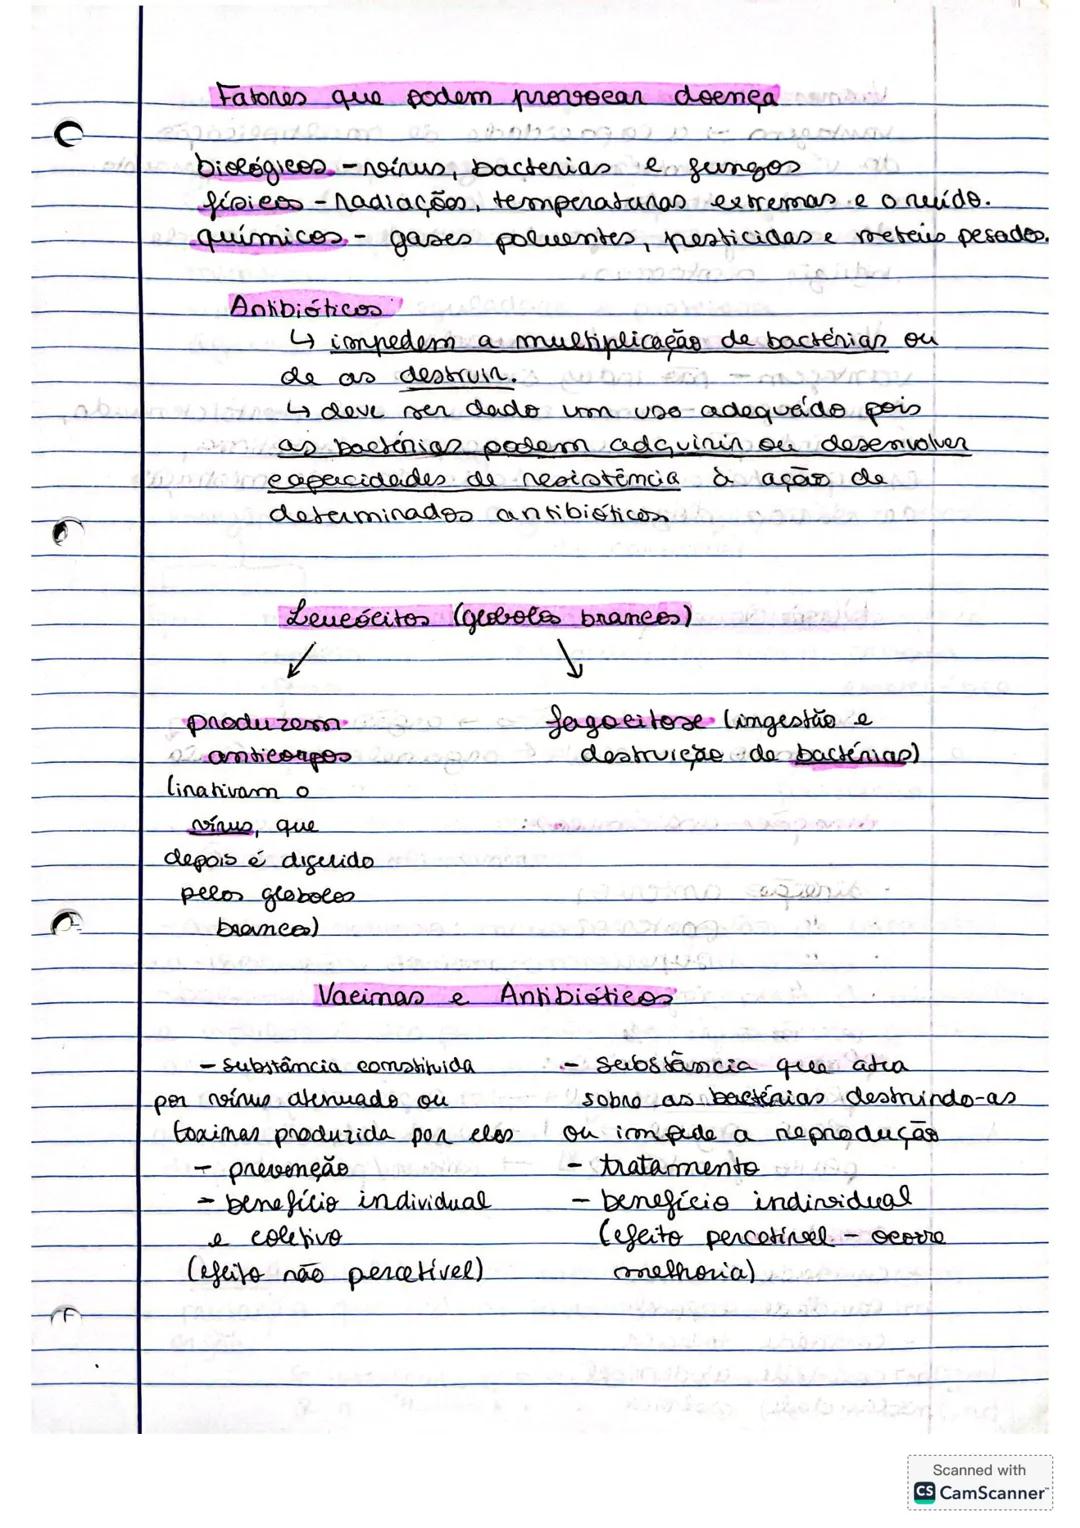 Fatores que podem provocar doença
biológicos - vírus, bacterias e fungos
físicos - radiação, temperaturas extremas e o ruído.
químicos - gases poluentes, pesticidas e metais pesados.
Antibióticos
↳ impedem a multiplicação de bactérias ou
de as destruir.
↳ deve ser dado um uso adequado pois
as bactérias podem adquirir ou desenvolver
capacidades de resistência à ação de
determinados antibióticos
Leucócitos (globolos brancos)
↙ ↘
produzem
anticorpos
(inativam o
vírus, que
depois é digerido
pelos globolos
brancos)
fagocitose (ingestão e
destruição de bactérias)
Vacinas e Antibióticos
- substância constituida
por vírus atenuado ou
toxinas produzida por eles
- prevenção
- benefício individual
e coletivo
(efeito não percetível)
- substância que atua
sobre as bactérias destruindo-as
ou impede a reprodução
- tratamento
- benefício individual
(efeito percetível - ocorre
melhoria)
Scanned with
CS CamScanner